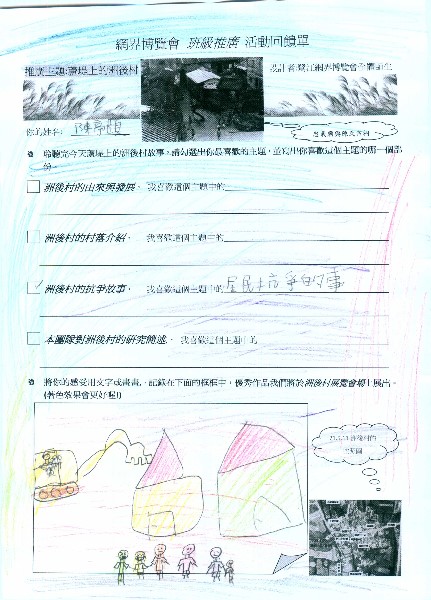 網界博覽會 班級推廣 活動回饋單
推廣主題:蘆堤上的洲後村
你的姓名:
聆聽完今天蘆堤上的洲後村故事，請勾選出你最喜歡的主題，並寫出你喜歡這個主題的哪一個部份。
洲後村的由來與發展， 我喜歡這個主題中的
洲後村的村落介紹， 我喜歡這個主題中的
洲後村的抗爭故事， 我喜歡這個主題中的 居民抗爭的事
本團隊對洲後村的研究簡述， 我喜歡這個主題中的
將你的感受用文字或畫畫，記錄在下面的框框中，優秀作品我們將於洲後村展覽會場上展出。
(著色效果會更好喔!)